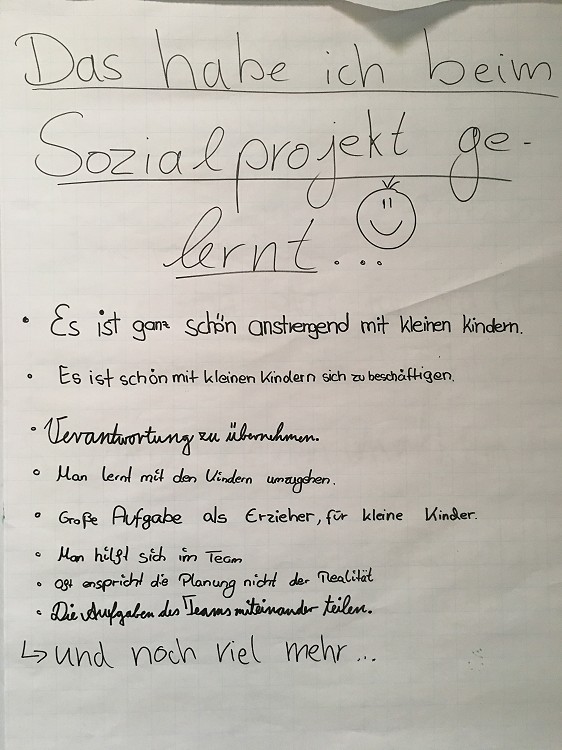 Das habe ich beim
Sozialprojekt ge-
lernt...
• Es ist ganz schön anstrergend mit kleinen Kindern.
• Es ist schön mit kleinen Kindern sich zu beschäftigen.
• Verantwortung zu übernehmen.
• Man lernt mit den Kindern umzugehen.
• Große Aufgabe als Erzieher, für kleine Kinder.
• Man hilft sich im Team
• Oft enspricht die Planung nicht der Realität
• Die Aufgaben des Teams miteinander teilen.
↳ und noch viel mehr...